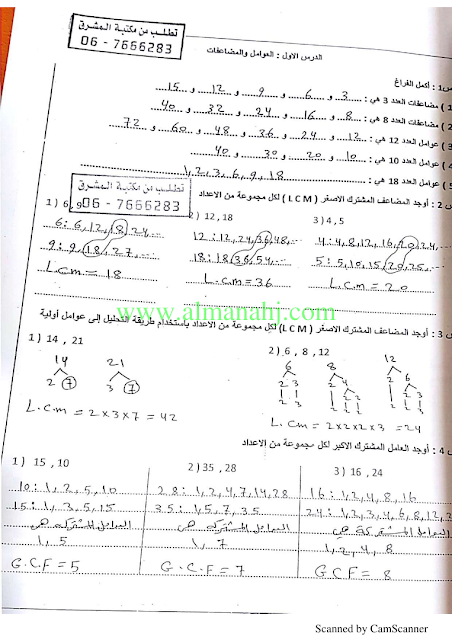 تطلب من مكتبة المشرق
06 - 7666283
الدرس الاول : العوامل والمضاعفات
س1 : أكمل الفراغ
1 ) مضاعفات العدد 3 هي : 3 و 6 و 9 و 12 و 15
2 ) مضاعفات العدد 8 هي : 8 و 16 و 24 و 32 و 40
3 ) عوامل العدد 12 هي : 12 و 24 و 36 و 48 و 60 و 72
4 ) عوامل العدد 10 هي : 10 و 20 و 30 و 40
5 ) عوامل العدد 18 هي : 1, 2, 3, 6, 9, 18
تطلب من مكتبة المشرق
06 - 7666283
س 2 : أوجد المضاعف المشترك الاصغر ( LCM ) لكل مجموعة من الاعداد
1) 6, 9 2) 12, 18 3) 4, 5
6: 6, 12, 18, 24, ... 12: 12, 24, 36, 48, ... 4: 4, 8, 12, 16, 20, 24, ...
9: 9, 18, 27, ... 18: 18, 36, 54, ... 5: 5, 10, 15, 20, 25, ...
L.cm = 18 L.cm = 36 L.cm = 20
www.almanahj.com
س 3 : أوجد المضاعف المشترك الاصغر ( LCM ) لكل مجموعة من الاعداد بأستخدام طريقة التحليل إلى عوامل أولية
1) 14 , 21 2) 6 , 8 , 12
14 21 6 8 12
2 7 3 7 2 3 2 4 2 6
2 2 2 3
L.cm = 2×3×7 = 42 L.cm = 2×2×2×3 = 24
س 4 : أوجد العامل المشترك الاكبر لكل مجموعة من الاعداد
1) 15 , 10 2) 35 , 28 3) 16 , 24
10: 1, 2, 5, 10 28: 1, 2, 4, 7, 14, 28 16: 1, 2, 4, 8, 16
15: 1, 3, 5, 15 35: 1, 5, 7, 35 24: 1, 2, 3, 4, 6, 8, 12, 2
العوامل المشتركة هي العوامل المشتركة هي العوامل المشتركة هي
1, 5 1, 7 1, 2, 4, 8
G.CF = 5 G.C.F = 7 GCF = 8
Scanned by CamScanner